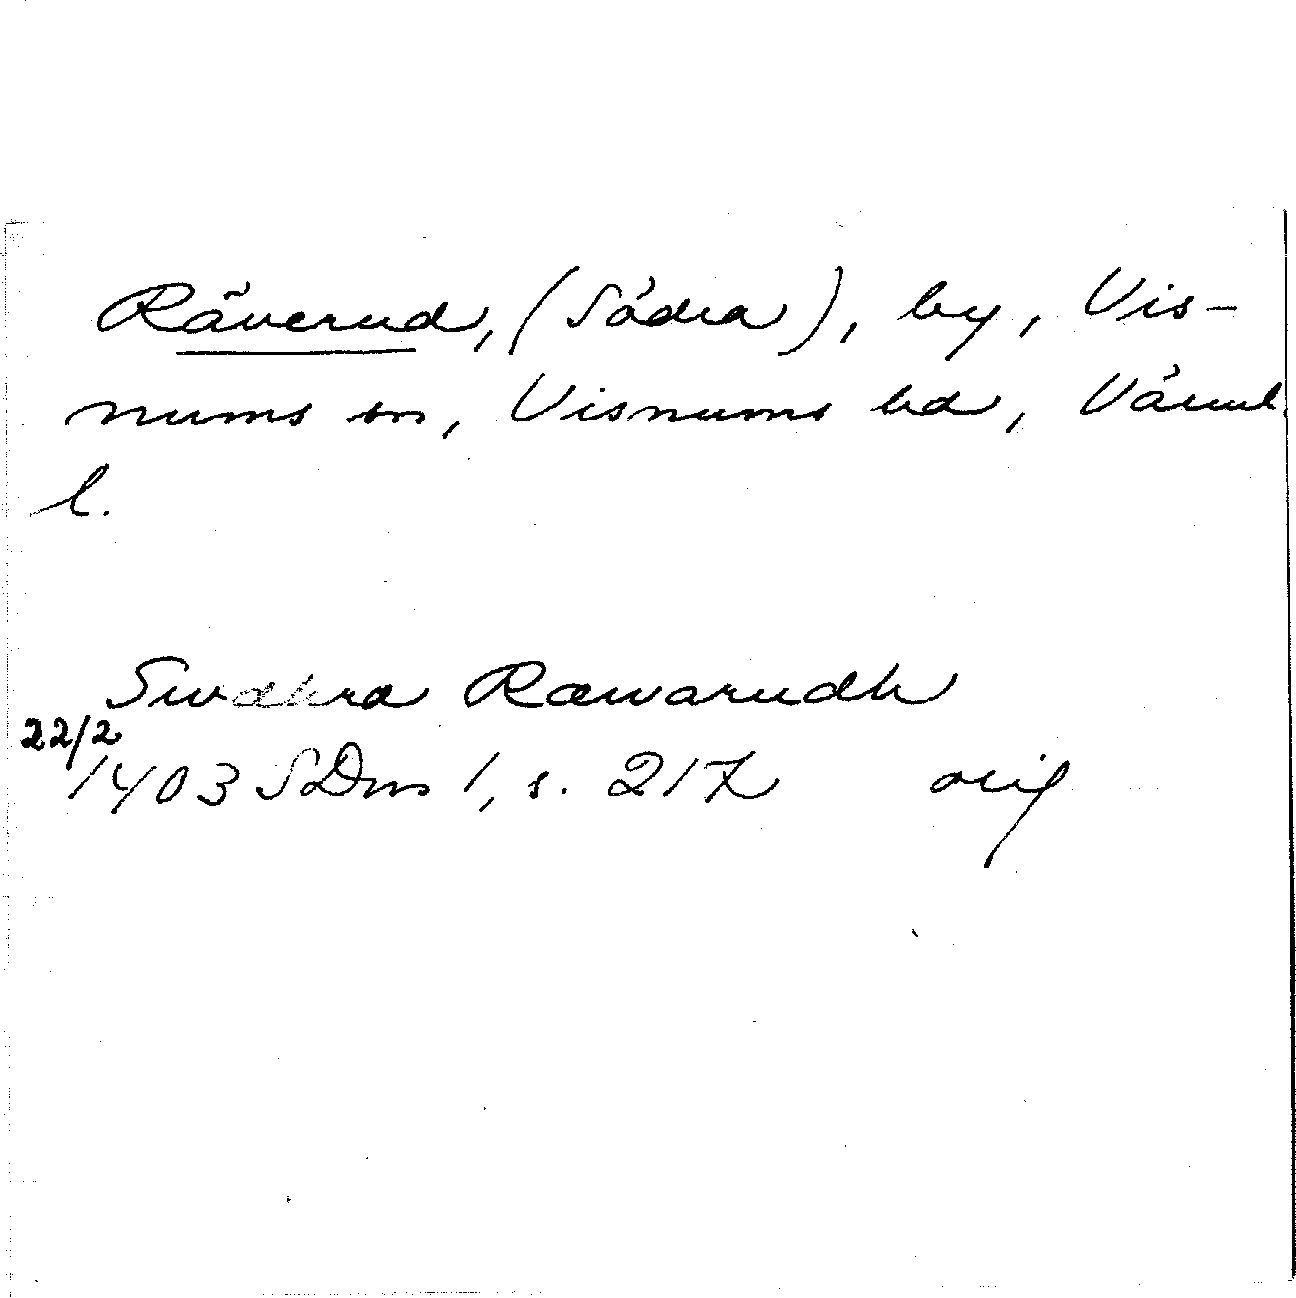 Räverud, (Södra), by, Vis-
nums sn, Visnums hd, Värml
l.
Swdhra Ræwarudh
22/2
1403 SDns 1, s. 217 orig